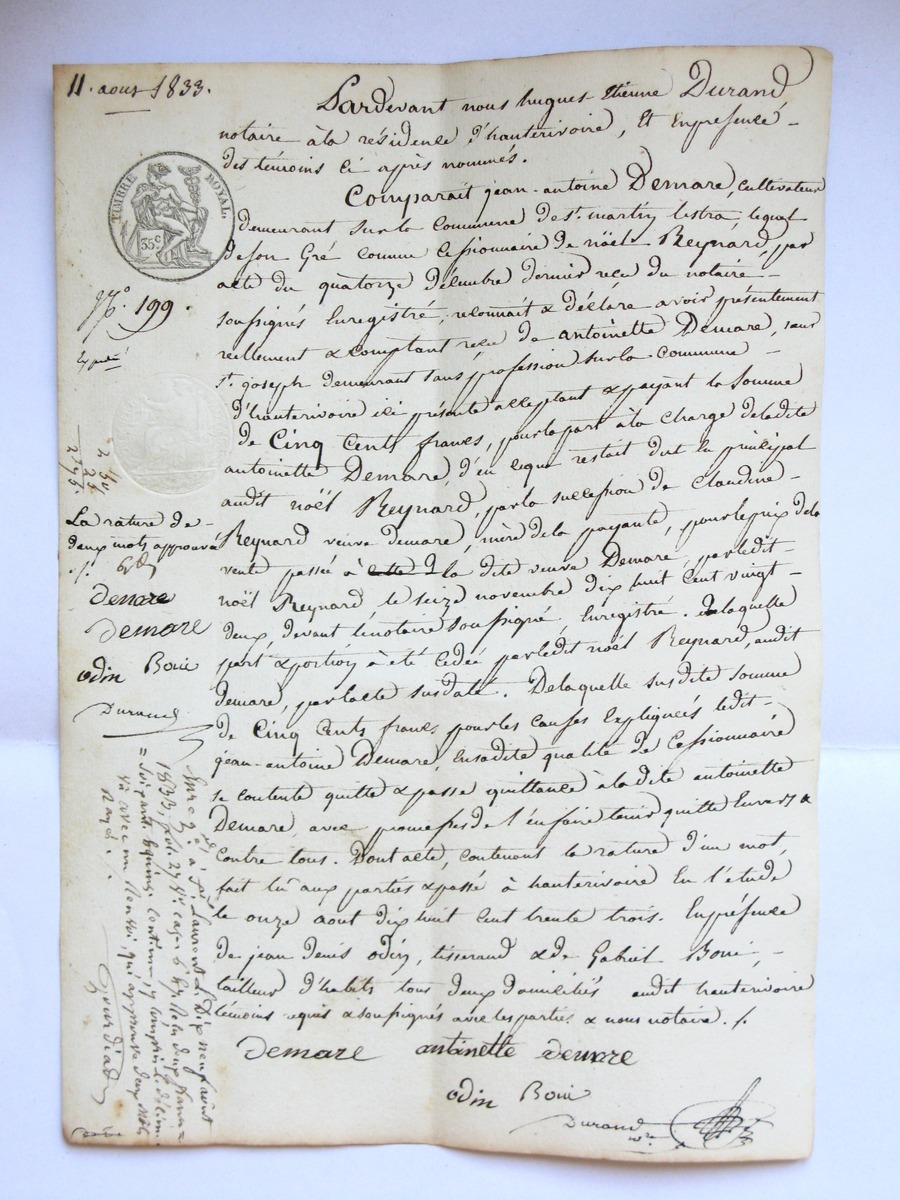 11. aout 1833.
TIMBRE ROYAL.
35 c
N.o 199.
La rature de
deux mots approuvée
./.
Demare
Demare
odin Boni
Durand
Pardevant nous hugues Etienne Durand
notaire à la résidence d'hauterivoire, Et Enpresence
des témoins ci après nommés.
Comparait jean-antoine Demare, cultivateur
demeurant sur la Commune de st. martin lestra, lequel
de son Gré comme Cessionnaire de noël Reynard, par
acte du quatorze décembre dernier reçu du notaire
soussigné, Enregistré, reconnait & déclare avoir présentement
reellement & comptant reçu de antoinette Demare, sœur
st. joseph demeurant sans profession sur la commune
d'hauterivoire ici présente acceptant & payant la Somme
de Cinq Cents francs, pour la part à la charge de ladite
antoinette Demare, d'en ce que restait dut en principal
audit noël Reynard, par la succession de Claudine
Reynard veuve demare, mère de la payante, pour le prix de la
vente passée à la dite veuve Demare, par ledit
noël Reynard, le seize novembre dix huit cent vingt
deux, devant le notaire soussigné, Enregistré. de laquelle
part & portion à été cédée par ledit noël Reynard, audit
demare, par l'acte susdaté. De laquelle susdite somme
de Cinq Cents francs pour les causes Expliquées ledit
jean-antoine Demare, Ensadite qualité de Cessionnaire
se contente quitte & passe quittance à la dite antoinette
Demare, avec promesses de l'en faire tenir quitte Envers &
Contre tous. Dont acte, contenant la rature d'un mot,
fait lu aux parties & passé à hauterivoire En l'étude
le onze aout dix huit cent trente trois. Enpresence
de jean denis odin, tisserand & de Gabriel Boni,
tailleur d'habits tous deux domiciliés audit hauterivoire
témoins requis & soussignés avec les parties & nous notaire. /.
Demare antoinette demare
odin Boni
Durand
nre